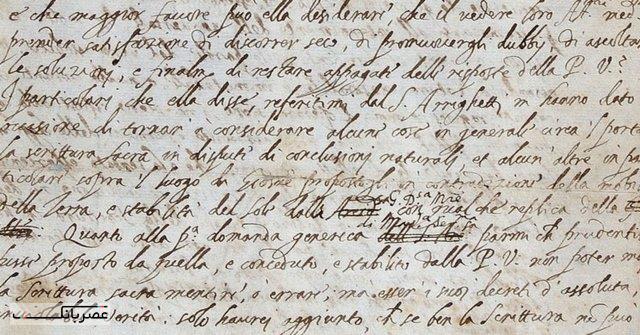 e che maggior favore può ella desiderare, che il vedere loro Alt.e med
prender satisfazione di discorrer seco, di promuovergli dubbij, di ascolta
le soluzioni, e finalm.e di restare appagati delle risposte della P. V.a
I particolari che ella disse, referitimi dal S. Arrighetti, m'hanno dato
occasione di tornar' a considerare alcune cose in generale circa 'l portar
la scrittura sacra in dispute di conclusioni naturali, et alcun' altre in par
ticolari sopra 'l luogo di Giosuè propostogli in contradizione della mobi
della Terra, e stabilità del Sole dalla G. D.a M.re con qualche replica della
Quanto alla p.a domanda generica di M.ma Ser.ma parmi ch' prudenti
fusse proposto da quella, e conceduto, e stabilito dalla P. V. non poter mai
la Scrittura sacra mentire, o errare, ma esser i suoi decreti d'assoluta
verità. solo haurei aggiunto, ch' se ben la Scrittura non può
عصر باتا